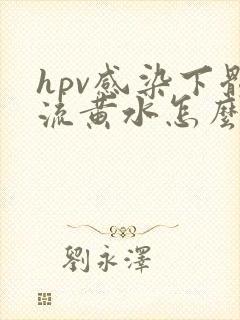 hpv感染下體
流黃水怎麼
劉永澤